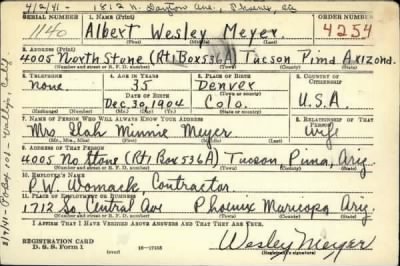 4/2/41 - 1812 N. Dayton Ave., Phoenix,
SERIAL NUMBER 1. NAME (Print) ORDER NUMBER
1140 Albert Wesley Meyer. 4254
(First) (Middle) (Last)
2. ADDRESS (Print)
4005 North Stone (Rt1 Box 536A) Tucson Pima Arizona.
(Number and street or R. F. D. number) (Town) (County) (State)
3. TELEPHONE 4. AGE IN YEARS 5. PLACE OF BIRTH 6. COUNTRY OF CITIZENSHIP
none. 35 Denver
DATE OF BIRTH (Town or county)
Dec. 30, 1904 Colo. U.S.A.
(Exchange) (Number) (Mo.) (Day) (Yr.) (State or country)
7. NAME OF PERSON WHO WILL ALWAYS KNOW YOUR ADDRESS 8. RELATIONSHIP OF THAT PERSON
Mrs. Elah Minnie Meyer wife
(Mr., Mrs., Miss) (First) (Middle) (Last)
9. ADDRESS OF THAT PERSON
4005 No. Stone (Rt1 Box 536A) Tucson Pima, Ariz
(Number and street or R. F. D. number) (Town) (County) (State)
10. EMPLOYER'S NAME
P.W. Womack, Contractor.
11. PLACE OF EMPLOYMENT OR BUSINESS
1712 So. Central Ave Phoenix Maricopa Ariz.
(Number and street or R. F. D. number) (Town) (County) (State)
I AFFIRM THAT I HAVE VERIFIED ABOVE ANSWERS AND THAT THEY ARE TRUE.
REGISTRATION CARD
D. S. S. Form 1 (over) 16-17105 Wesley Meyer
(Registrant's signature)
PO Box 101 - Vallejo Calif